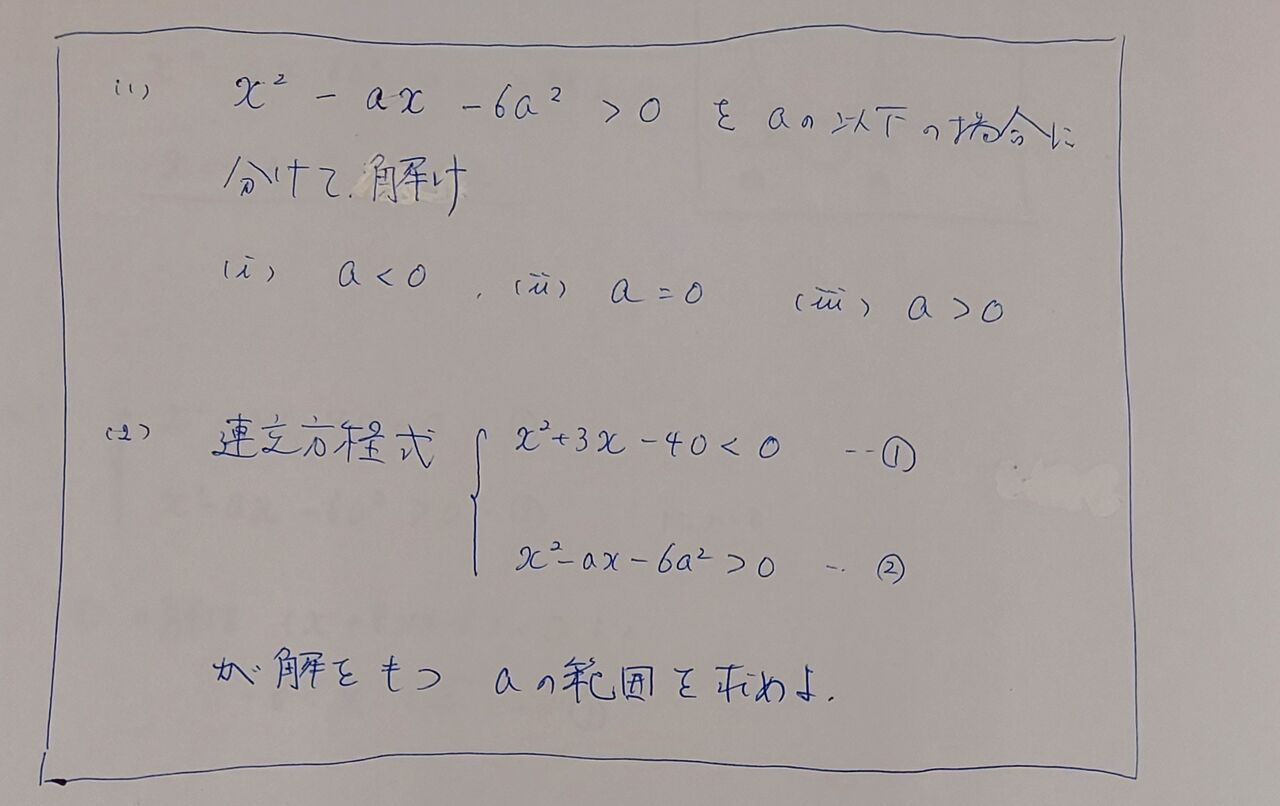 (1) x² - ax - 6a² > 0 を aの以下の場合に
分けて解け
(i) a < 0 , (ii) a = 0 (iii) a > 0
(2) 連立方程式 { x²+3x-40 < 0 …①
x²-ax-6a² > 0 …②
が解をもつ aの範囲を求めよ.